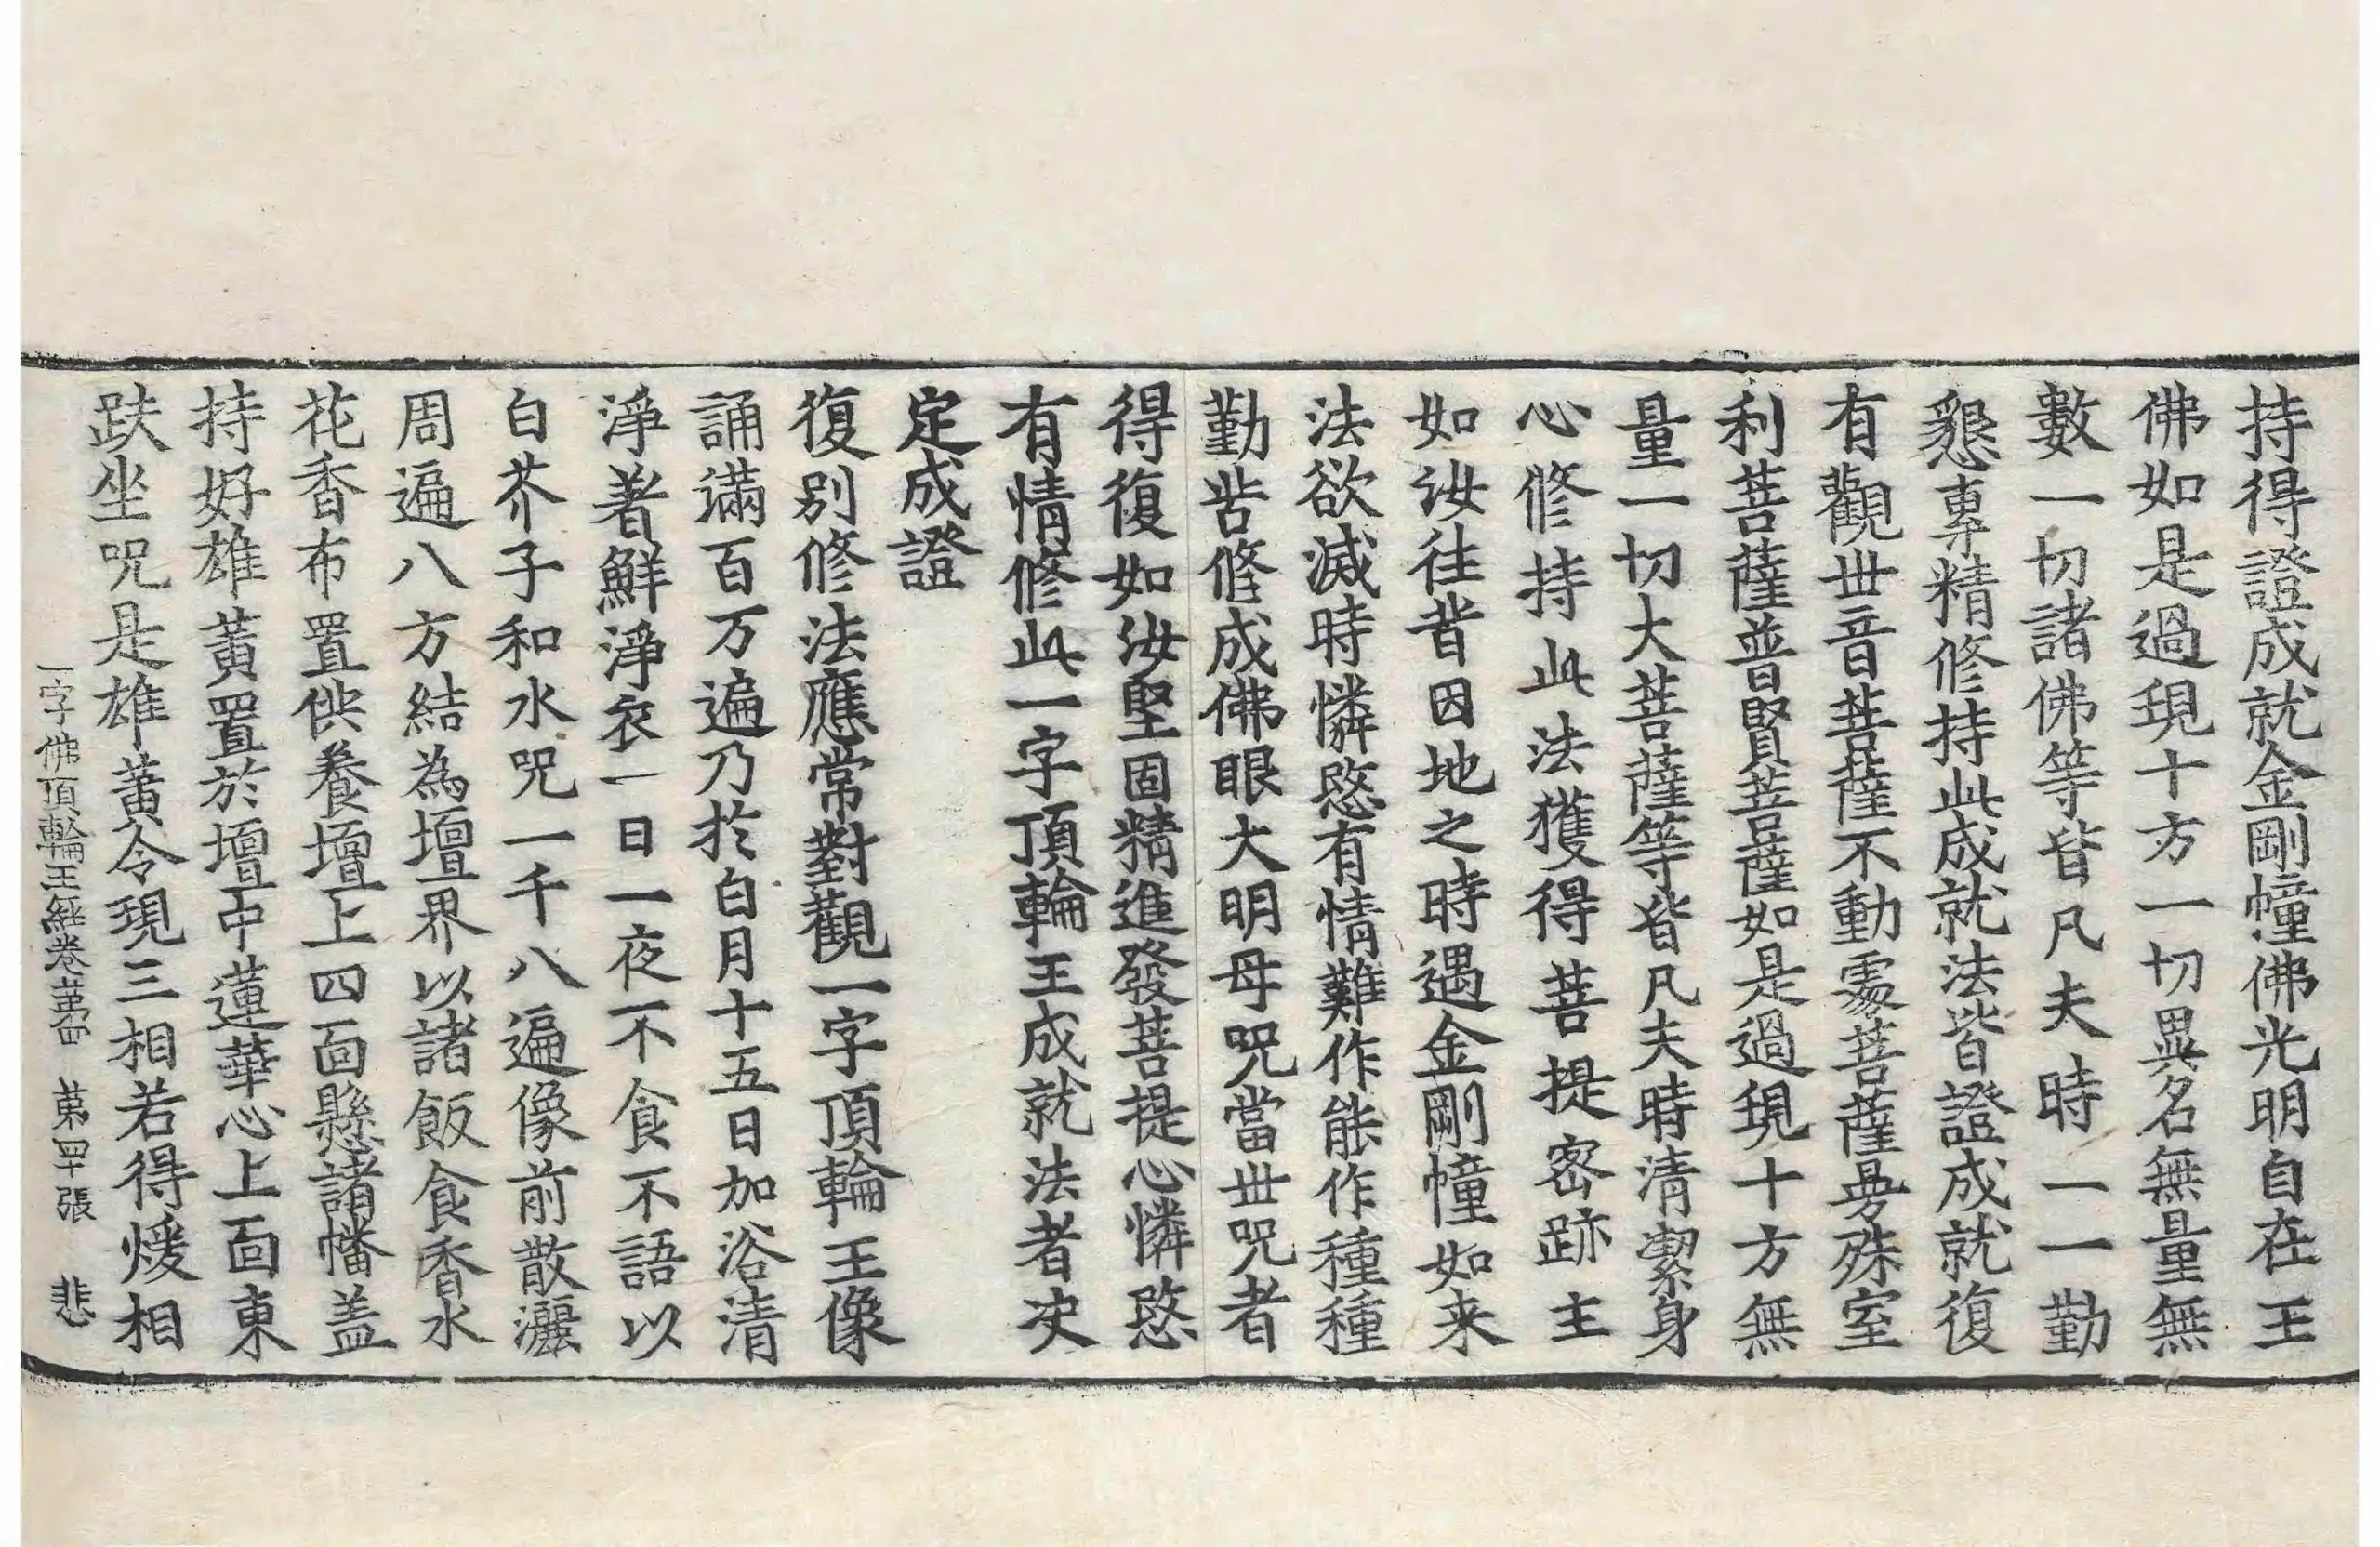 持得證成就金剛幢佛光明自在王
佛如是過現十方一切異名無量無
數一切諸佛等皆凡夫時一一勤
懇專精修持此成就法皆證成就復
有觀世音菩薩不動處菩薩曼殊室
利菩薩普賢菩薩如是過現十方無
量一切大菩薩等皆凡夫時清潔身
心修持此法獲得菩提密跡主
如汝往昔因地之時遇金剛幢如来
法欲滅時憐愍有情難作能作種種
勤苦修成佛眼大明母呪當世呪者
得復如汝堅固精進發菩提心憐愍
有情修此一字頂輪王成就法者决
定成證
復別修法應常對觀一字頂輪王像
誦滿百万遍乃於白月十五日加浴清
淨著鮮淨衣一日一夜不食不語以
白芥子和水呪一千八遍像前散灑
周遍八方結為壇界以諸飯食香水
花香布置供養壇上四面懸諸幡盖
持好雄黃置於壇中蓮華心上面東
趺坐呪是雄黃令現三相若得煖相
一字佛頂輪王經卷苐四 苐四十張 悲